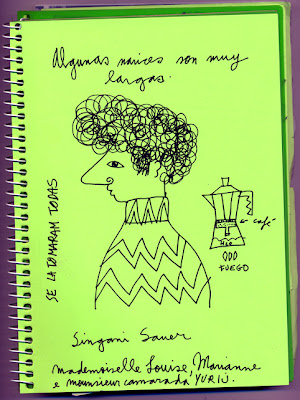 Algunas narices son muy
largas.
SE LA TOMARAM TODAS
café
H2O
FUEGO
Singani Sauer
mademoiselle Louise, Marianne
e mounsieur camarada YURIJ.